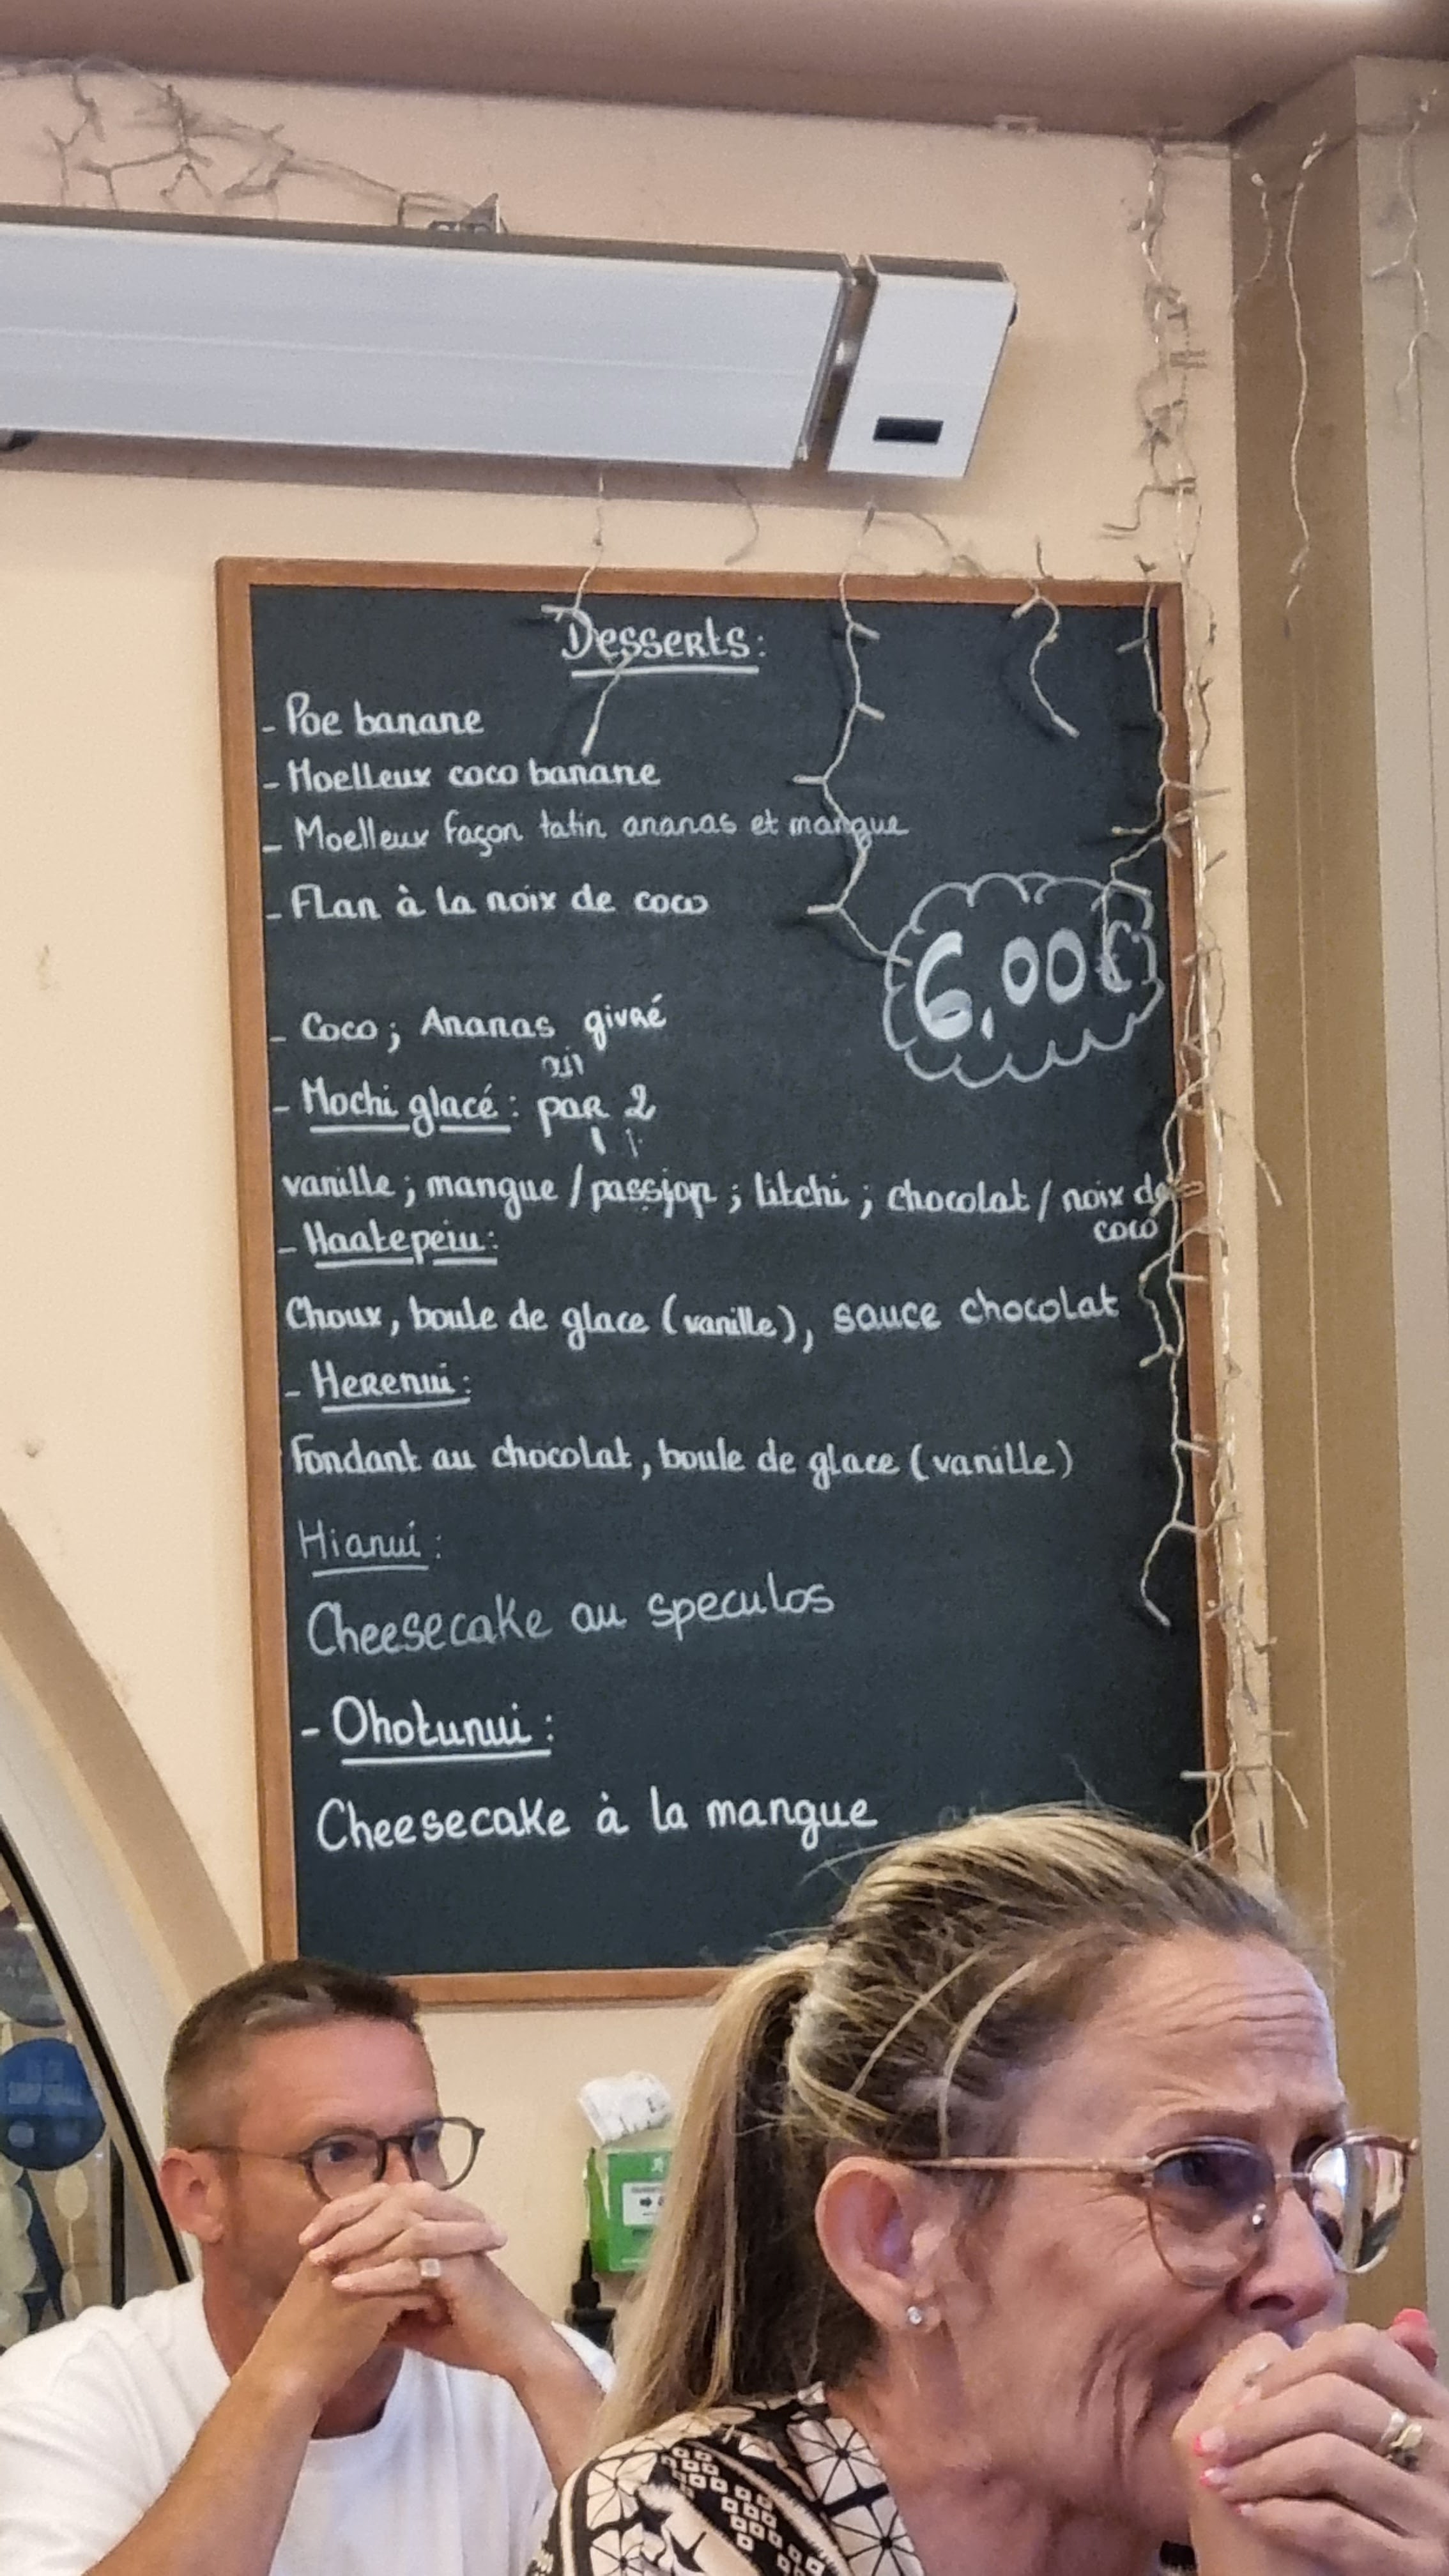 Desserts:
- Poe banane
- Moelleux coco banane
- Moelleux façon tatin ananas et mangue
- Flan à la noix de coco
6,00€
- Coco; Ananas givré
- Mochi glacé: par 2
vanille; mangue/passion; litchi; chocolat/noix de
coco
- Haatepeiu:
Choux, boule de glace (vanille), sauce chocolat
- Herenui:
Fondant au chocolat, boule de glace (vanille)
Hianui:
Cheesecake au speculos
- Ohotunui:
Cheesecake à la mangue